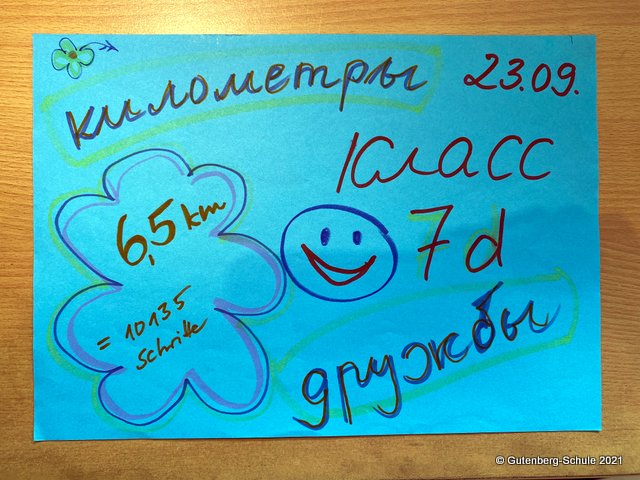 километры
23.09.
Класс
7d
6,5 km
= 10135
Schritte
дружбы
© Gutenberg-Schule 2021